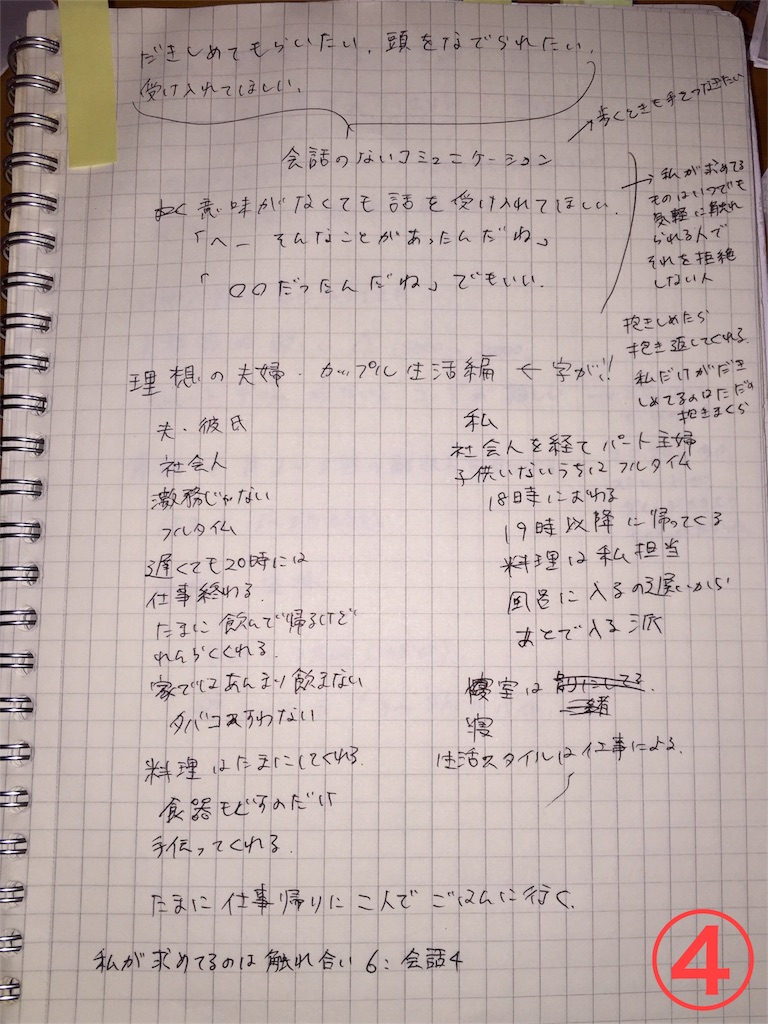 だきしめてもらいたい、頭をなでられたい、
受け入れてほしい、
→歩くときも手をつなぎたい
会話のないコミュニケーション
意味がなくても話を受け入れてほしい、
「へー そんなことがあったんだね」
「〇〇だったんだね」でもいい、
→私が求めてる
ものはいつでも
気軽に触れ
られる人で
それを拒絶
しない人
抱きしめたら
抱き返してくれる
私だけがだき
しめてるのはただの
抱きまくら
理想の夫婦・カップル生活編 ← 字が!!
夫・彼氏
社会人
激務じゃない
フルタイム
遅くても20時には
仕事終わる、
たまに飲んで帰るけど
れんらくくれる、
家ではあんまり飲まない
タバコすわない
料理はたまにしてくれる
食器もどすのだけ
手伝ってくれる、
私
社会人を経てパート主婦
子供いないうちはフルタイム
18時におわる
19時以降に帰ってくる
料理は私担当
風呂に入るの遅いから
あとで入る派
寝室は 別にしてる、
一緒
寝
生活スタイルは仕事による、
たまに仕事帰りに二人でごはんに行く、
私が求めてるのは触れ合い6:会話4
④